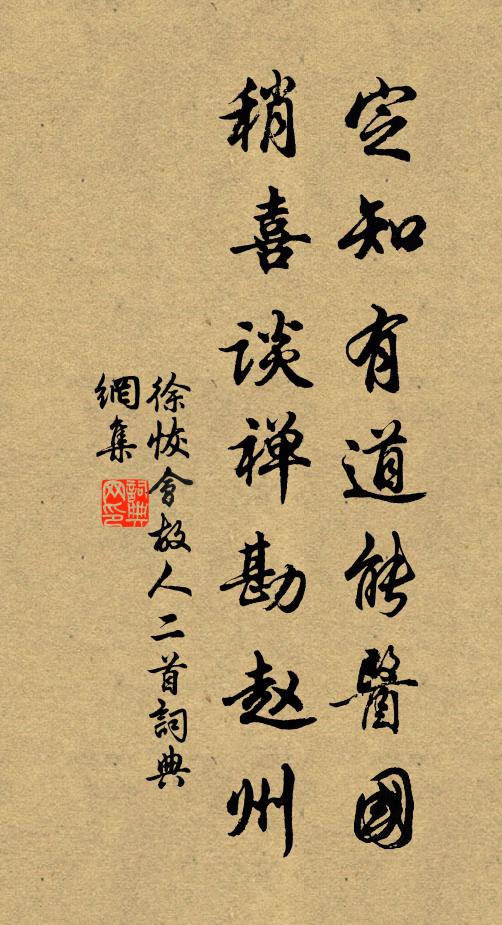 定知有道能醫國
稍喜谈禅勘赵州
徐恢會故人二首詞典
網集
詞典
网印